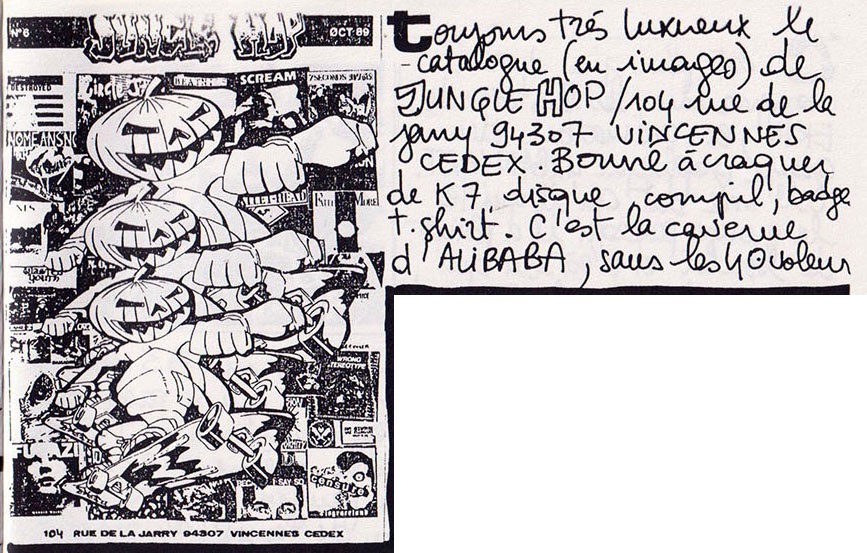 N°6
JUNGLE HOP
OCT·89
DESTROYED
SCREAM
7 SECONDS
NOMEANSNO
WASTED
YOUTH
WRONG
STEREOTYPE
FUGAZI
BEC
I SAY SO
censure
104 RUE DE LA JARRY 94307 VINCENNES CEDEX
toujours très luxueux le
catalogue (en images) de
JUNGLE HOP /104 rue de la
jarry 94307 VINCENNES
CEDEX. Bourré à craquer
de K7, disque, compil, badge
t.shirt. C'est la caverne
d'ALIBABA, sans les 40 voleurs